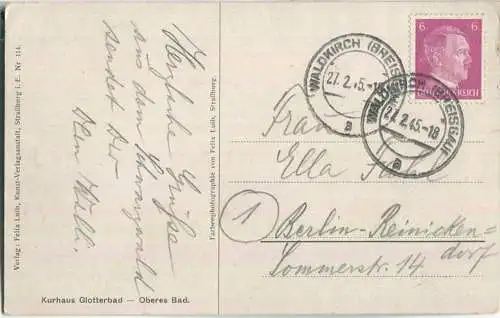 Verlag: Felix Luib, Kunst-Verlagsanstalt, Straßburg i. E. Nr 114.
Herzliche Grüße
aus dem Schwarzwald
sendet Dir
Dein Willi.
Farbenphotographie von Felix Luib, Straßburg.
Kurhaus Glotterbad — Oberes Bad.
6 6
WALDKIRCH (BREISGAU)
27.2.45.-18
a
WALDKIRCH (BREISGAU)
27.2.45.-18
a
Frau
Ella
1
Berlin-Reinicken-
dorf
Sommerstr. 14